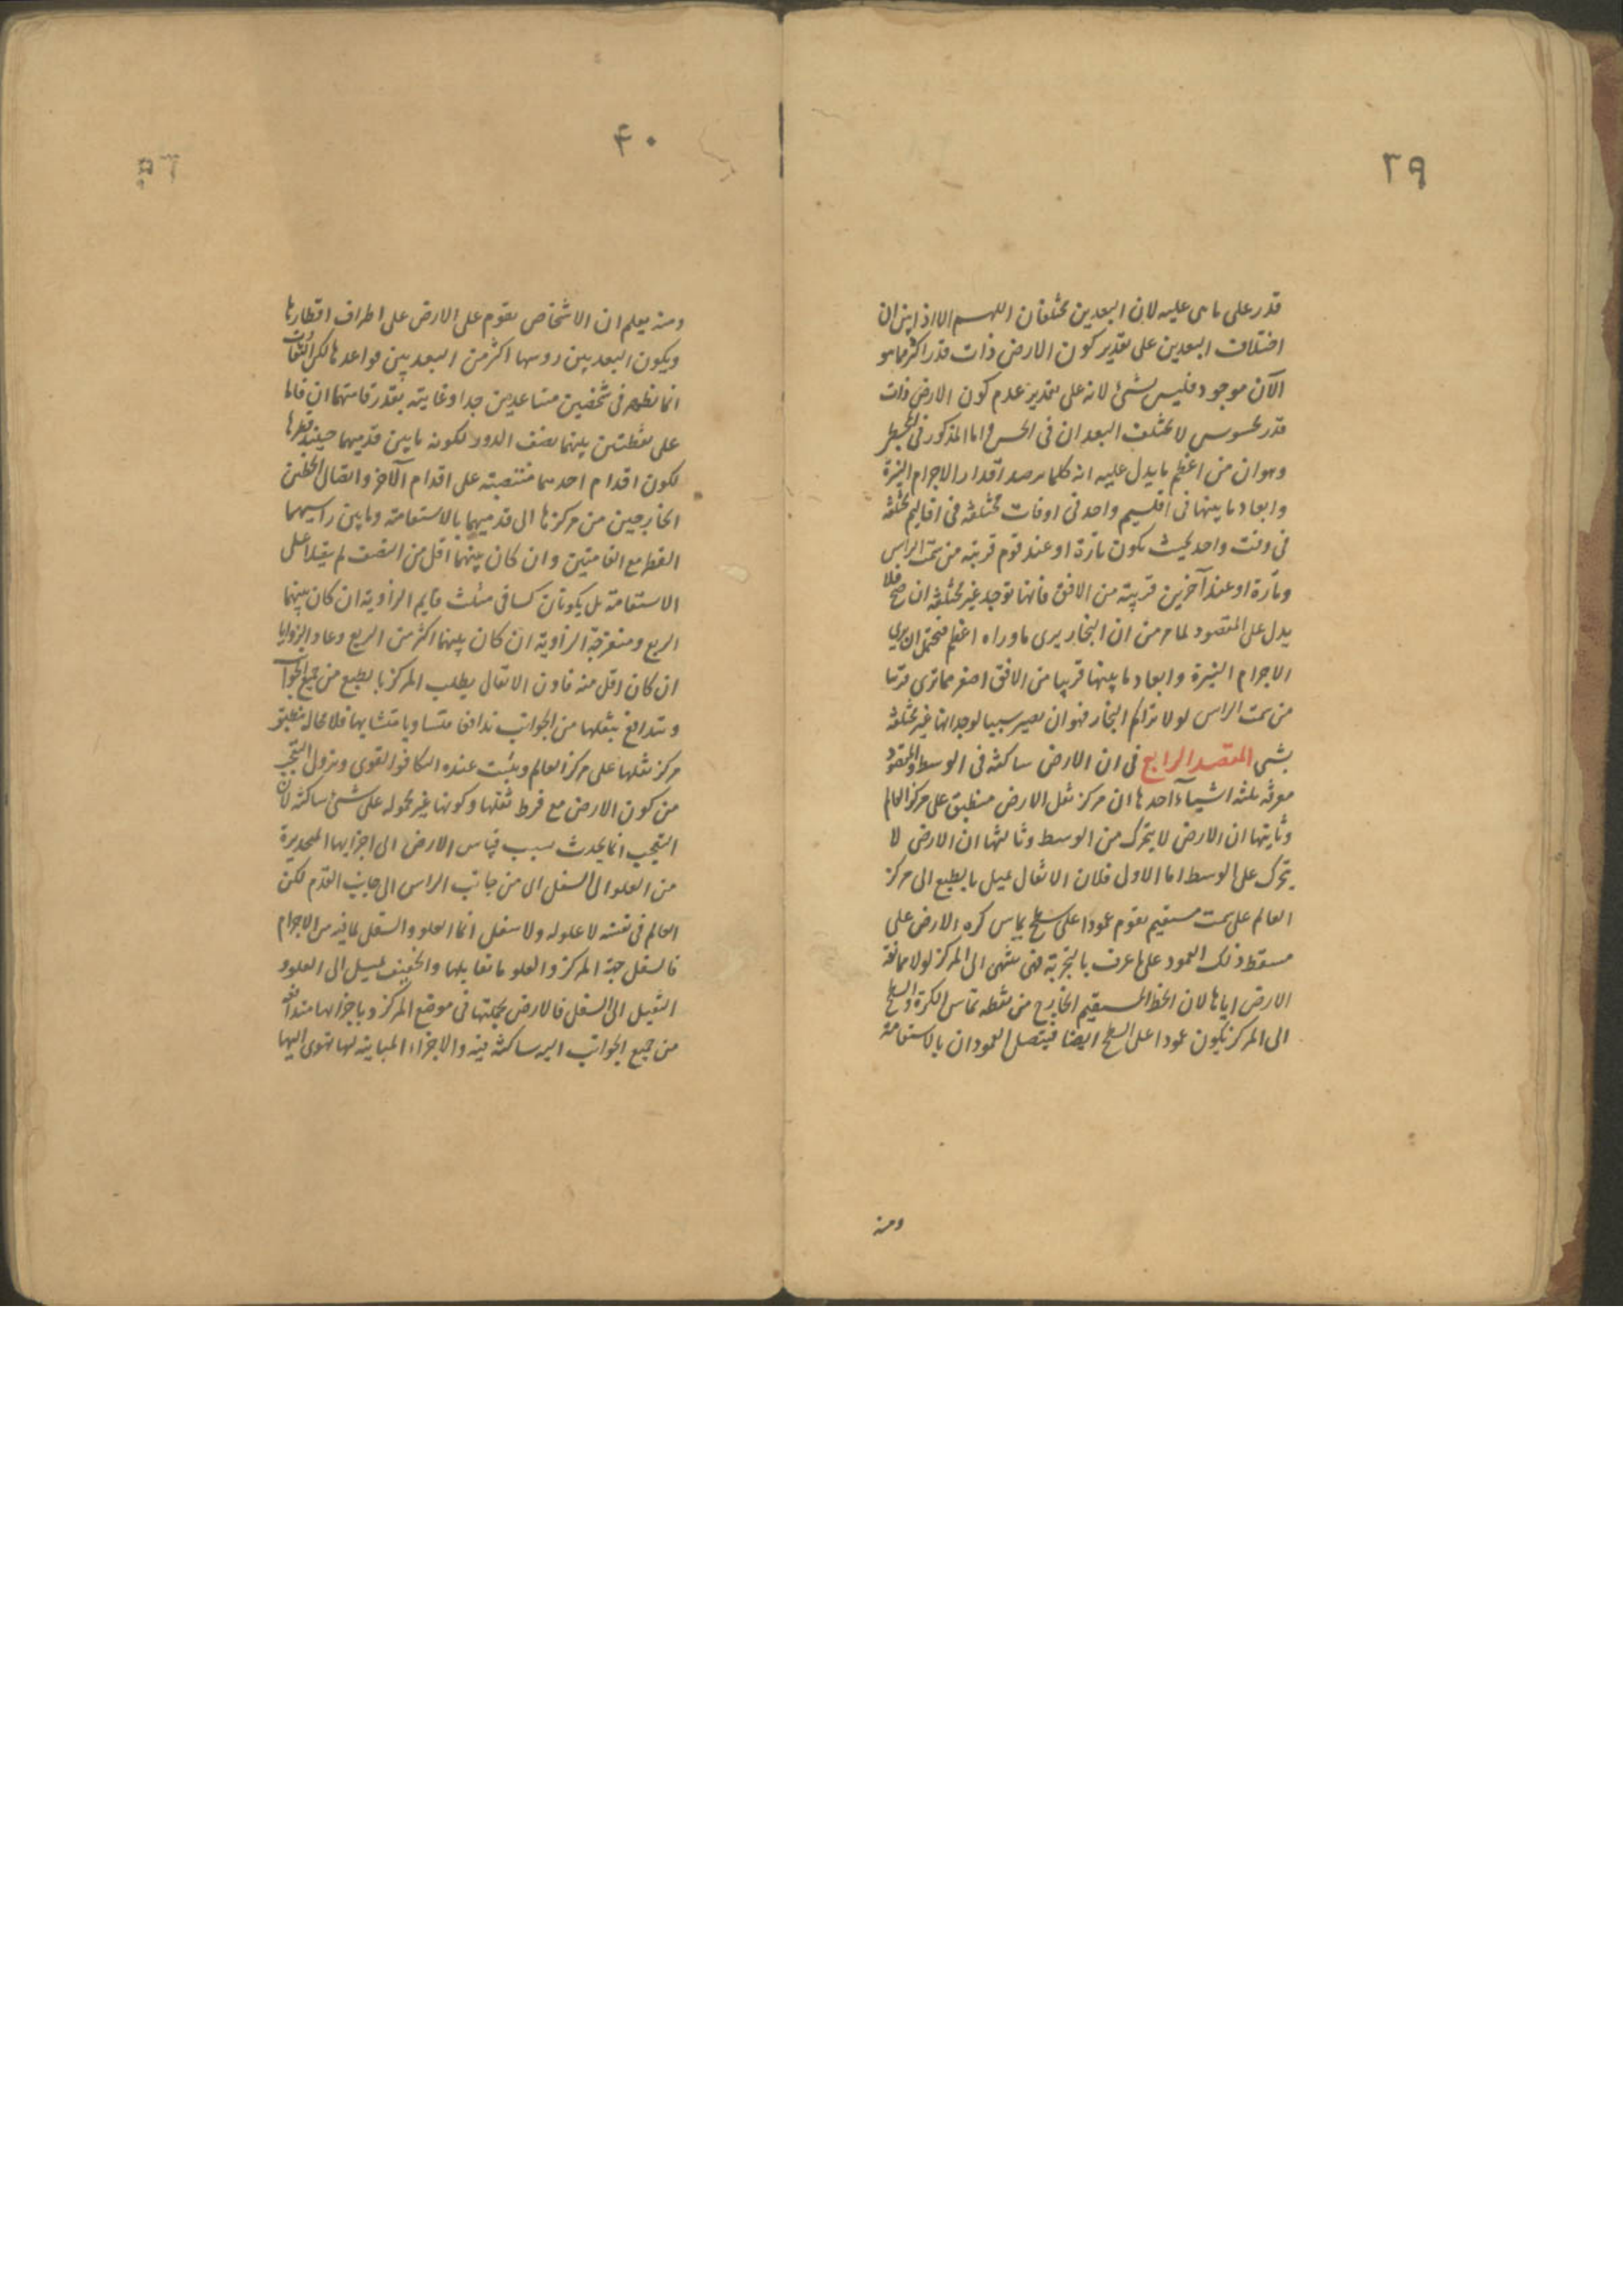 ٣٩
قدر على ما هى عليه لان البعدين مختلفان اللهم الا اذا بين ان
اختلاف البعدين على تقدير كون الارض ذات قدر اكثر مما هو
الآن موجود فليس بشئ لانه على تقدير عدم كون الارض ذات
قدر محسوس لا يختلف البعدان فى الحس واما المذكور فى المجسطى
وهو ان من اعظم ما يدل عليه انه كلما يرصد اقدار الاجرام النيرة
وابعاد ما بينها فى اقليم واحد فى اوقات مختلفة فى اقاليم مختلفة
فى وقت واحد بحيث يكون تارة او عند قوم قريبة من سمت الراس
وتارة او عند آخرين قريبة من الافق فانها توجد غير مختلفة ان صح فلا
يدل على المقصود لما مر من ان البخار يرى ما وراه اعظم فيحتمل ان يرى
الاجرام النيرة وابعاد ما بينها قريبا من الافق اصغر مما ترى قريبا
من سمت الراس لولا تراكم البخار فهو ان يصير سببا لوجدانها غير مختلفة
بشى المقصد الرابع فى ان الارض ساكنة فى الوسط والمقصود
معرفة ثلثة اشياء احدها ان مركز ثقل الارض منطبق على مركز العالم
وثانيها ان الارض لا يتحرك من الوسط وثالثها ان الارض لا
يتحرك على الوسط اما الاول فلان الاثقال تميل بالطبع الى مركز
العالم على سمت مستقيم يقوم عمودا على سطح يماس كره الارض على
مسقط ذلك العمود على ما عرف بالتجربة حتى ينتهى الى المركز لولا ممانعة
الارض اياها لان الخط المستقيم الخارج من نقطة تماس الكرة والسطح
الى المركز يكون عمودا على السطح ايضا فيتصل العمودان بالاستقامة
ومنه
۴۰
ومنه يعلم ان الاشخاص يقوم على الارض على اطراف اقطارها
ويكون البعد بين روسها اكثر من البعد بين قواعدها لكن التفاوت
انما يظهر فى شخصين متباعدين جدا وغايته بقدر قامتهما ان قاما
على نقطتين بينهما نصف الدور لكون ما بين قدميهما حينئذ قطرها
لكون اقدام احدهما منتصبة على اقدام الآخر واتصال الخطين
الخارجين من مركزها الى قدميهما بالاستقامة وما بين راسيهما
القطر مع القامتين وان كان بينهما اقل من النصف لم يتصلا على
الاستقامة بل يكونان كساقى مثلث قايم الزاوية ان كان بينهما
الربع ومنفرجة الزاوية ان كان بينهما اكثر من الربع وحاد الزوايا
ان كان اقل منه فاذن الاثقال يطلب المركز بالطبع من جميع الجوانب
وتتدافع بثقلها من الجوانب تدافعا متساويا متشابها فلا محالة ينطبق
مركز ثقلها على مركز العالم ويثبت عنده لتكافؤ القوى ويزول التعجب
من كون الارض مع فرط ثقلها وكونها غير محمولة على شئ ساكنة لان
التعجب انما يحدث بسبب قياس الارض الى اجزايها المنحدرة
من العلو الى السفل اى من جانب الراس الى جانب القدم لكن
العالم فى نفسه لا علو له ولا سفل انما العلو والسفل لما فيه من الاجرام
فالسفل جهة المركز والعلو ما تقابلها والخفيف يميل الى العلو و
الثقيل الى السفل فالارض بجملتها فى موضع المركز وباجزايها متدافعة
من جميع الجوانب اليه ساكنة فيه والاجزاء المباينة لها تهوى اليها